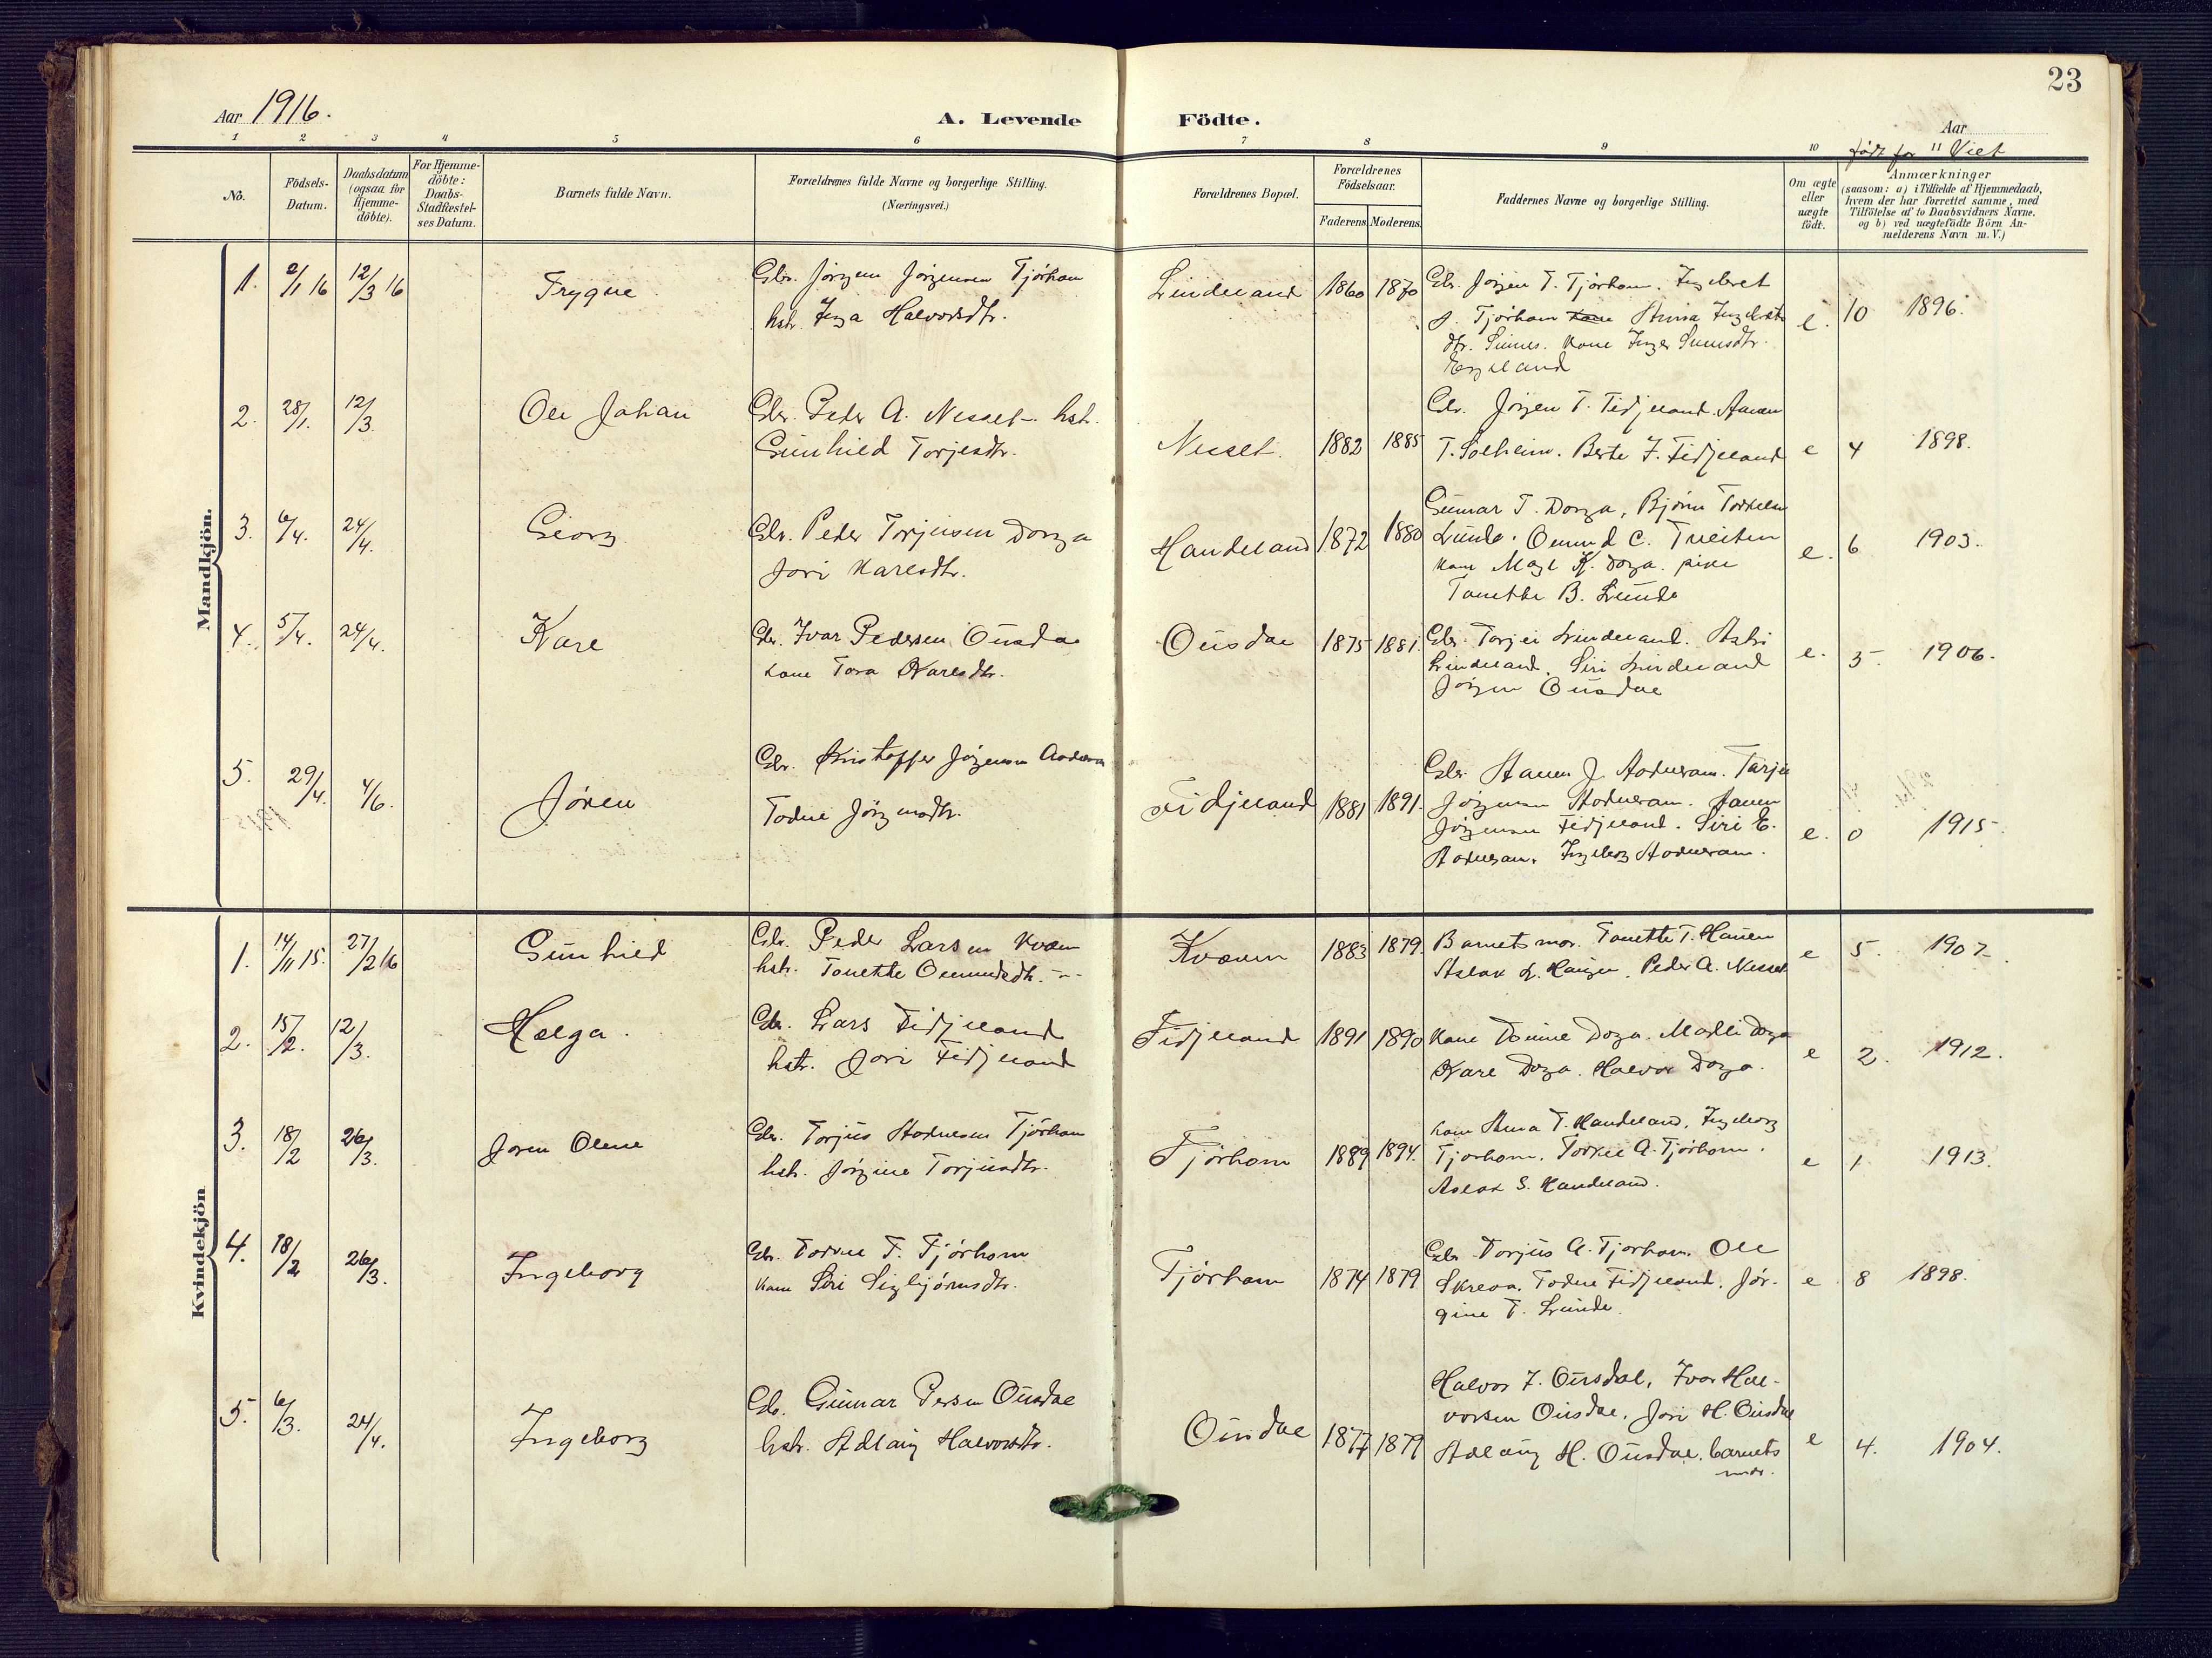 23
Aar 1916.
A. Levende Födte.
Aar
1 2 3 4 5 6 7 8 9 10 11
født før Viet
No.
Födsels-
Datum.
Daabsdatum
(ogsaa for
Hjemme-
döbte).
For Hjemme-
döbte:
Daabs-
Stadfæstel-
ses Datum.
Barnets fulde Navn.
Forældrenes fulde Navne og borgerlige Stilling.
(Næringsvei.)
Forældrenes Bopæl.
Forældrenes
Födselsaar.
Faderens. Moderens.
Faddernes Navne og borgerlige Stilling.
Om ægte
eller
uægte
födt.
Anmærkninger
(saasom: a) i Tilfælde af Hjemmedaab,
hvem der har forrettet samme, med
Tilföielse af to Daabsvidners Navne.
og b) ved uægtefödte Börn An-
melderens Navn m. V.)
Mandkjön.
1. 2/1 16 12/3 16 Trygve
Gbr. Jørgen Jørgensen Tjørhom
hstr. Inga Halvorsdtr.
Lindeland 1860 1870
Gbr. Jørgen T. Tjørhom. Ingebret
J. Tjørhom Kone Anna Ingebrets
dtr. Sinnes. Kone Inger Sveinsdtr.
e. 10 1896.
2. 28/1. 12/3. Ole Johan
Gbr. Peder A. Nesset hstr.
Gunhild Torjesdtr.
Nesset. 1882 1885
Gbr. Jørgen T. Fidjeland. Hauen
T. Solheim. Berte J. Fidjeland
e 4 1898.
3. 6/4. 24/4. Georg
Gbr. Peder Torjusen Dorga
Jori Karesdtr.
Handeland 1872 1880
Gunnar T. Dorga, Bjørn Torkelsen
Lunde. Omund C. Tveiten
kone K. Dorga. pike
Tonette B. Lunde
e. 6 1903.
4. 5/4. 24/4. Kare
Gbr. Ivar Pedersen Ousdal
kone Tora Karesdtr.
Ousdal 1875 1881.
Gbr. Torjei Lindeland. Astri
Lindeland. Siri Lindeland
Jørgen Ousdal
e. 5. 1906.
5. 29/4. 4/6. Jøren
Gbr. Kristoffer Jørgensen
Todne Jørgensdtr.
Fidjeland 1881 1891.
Jørgensen Fidjeland. Siri E.
e. 0 1915
Kvindekjön
1. 14/11 15. 27/2 16 Gunhild
Gbr. Peder Larsen Kvæven
hstr. Tonette Omundsdtr.
Kvæven 1883 1879.
Barnets mor. Tonette T. Haugen
Aslak L. Haugen. Peder A. Nesset
e 5. 1907
2. 15/2. 12/3. Helga.
Gbr. Lars Fidjeland
hstr. Jori Fidjeland
Fidjeland 1891 1890
Kare Dorga. Halvor Dorga.
e 2. 1912.
3. 18/2 26/3. Joren Olene
Gbr. Torjus Tjørhom
hstr. Jørgine Torjusdtr.
Tjørhom 1889 1894.
kone Anna T. Handeland, Ingeborg
Tjorhom. Torkel A. Tjörhom.
Aslak S. Handeland.
e 1 1913.
4. 18/2 26/3. Ingeborg
Gbr. Torkel T. Tjörhom
kone Siri Sigbjörnsdtr.
Tjörhom 1874 1879
Gbr Torjus A. Tjorhom. Ole
Skreva. Todne Fidjeland. Jör-
gine T. Lunde.
e. 8 1898.
5. 6/3. 24/4. Ingeborg
Gbr. Gunnar Persen Ousdal
hstr. Adlaug Halvorsdtr.
Ousdal 1877 1879
Halvor I. Ousdal, Ivar Hal-
vorsen Ousdal, Jori H. Ousdal
Adlaug H. Ousdal. barnets
mor.
e 4. 1904.